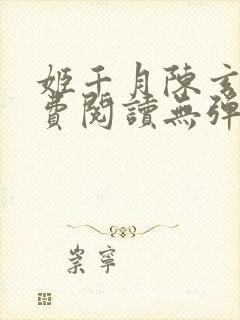 姬千月陳玄
費閱讀無彈
崇寧